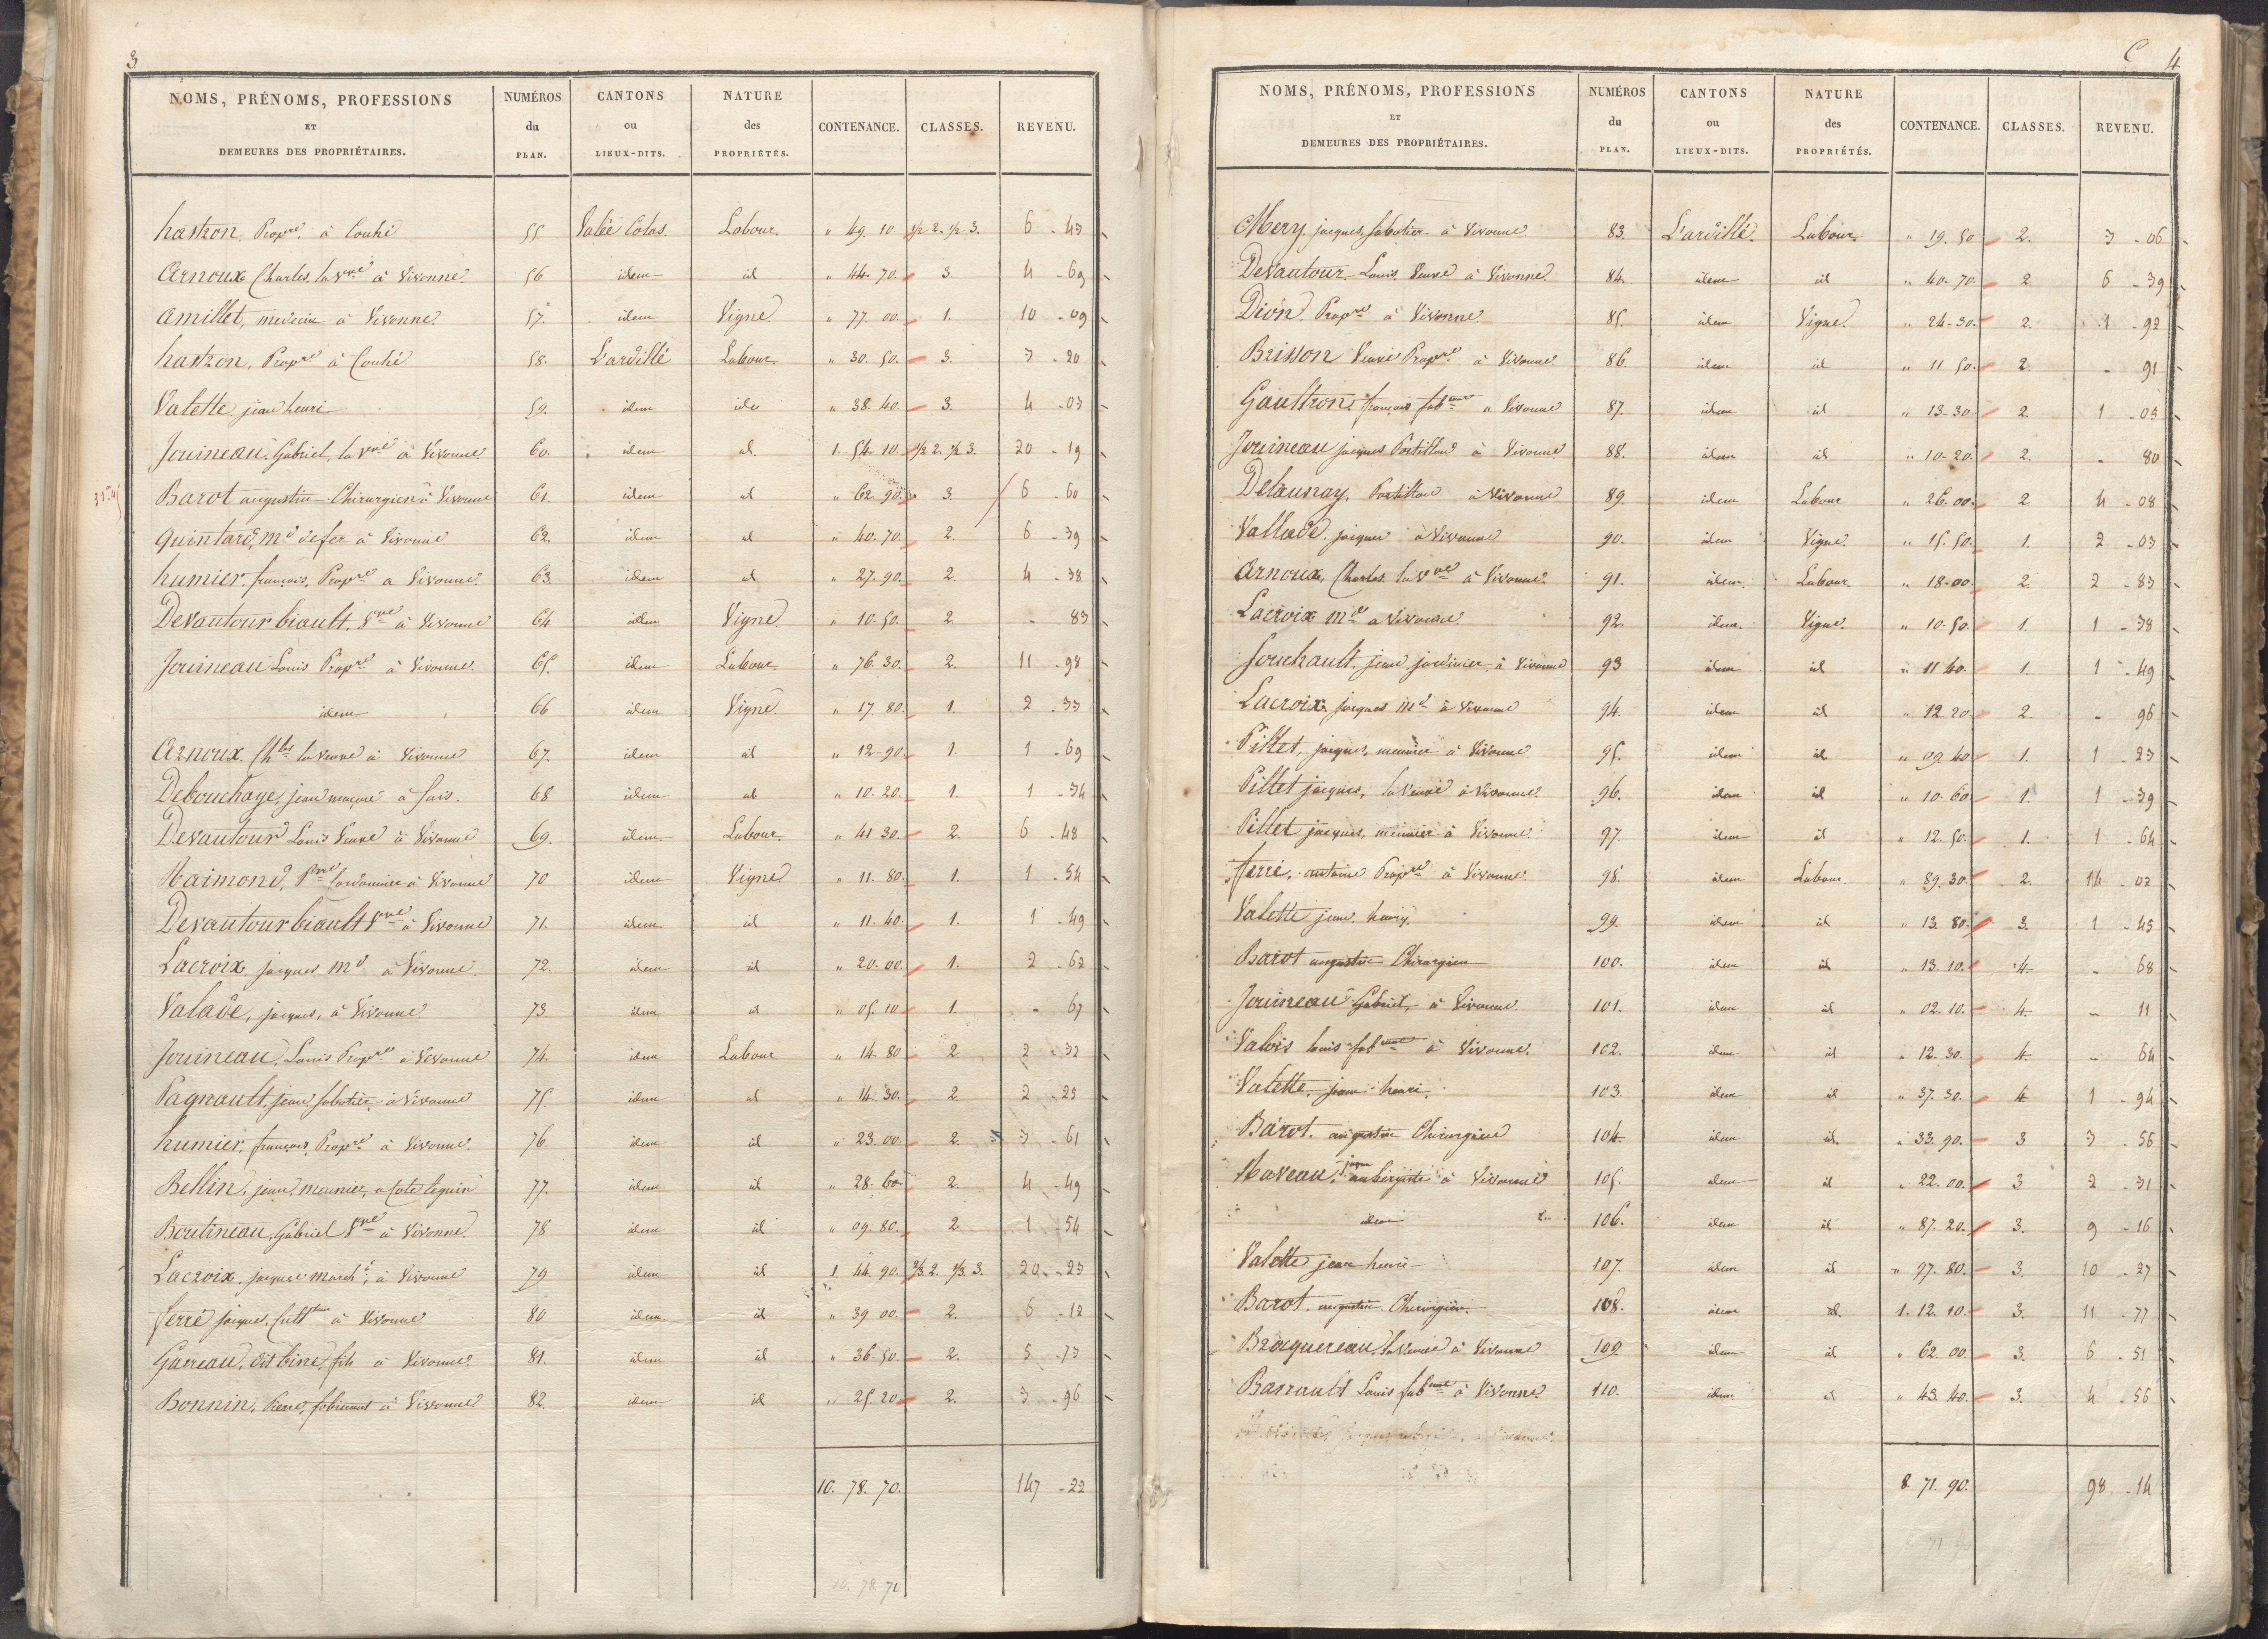 3
NOMS, PRÉNOMS, PROFESSIONS ET DEMEURES DES PROPRIÉTAIRES. NUMÉROS du PLAN. CANTONS ou LIEUX-DITS. NATURE des PROPRIÉTÉS. CONTENANCE. CLASSES. REVENU.
hastron Propre. à Couhé 55. Valée Colas. Labour. " 49. 10 1/2 2. 1/2 3. 6 - 43
Arnoux Charles. la Vve à Vivonne. 56 idem id " 44. 70. 3. 4 - 69
Amillet, medecin à Vivonne. 57. idem Vigne " 77. 00. 1. 10 - 09
hastron, Propre à Couhé 58. L'ardillé Labour. " 30. 50. 3. 3 - 20
Valette jean henri 59. idem " 38. 40. 3. 4 - 03
Jouineau. Gabriel, la Vve à Vivonne 60. idem id. 1. 54. 10. 1/2 2. 1/2 3. 20 - 19
Barot augustin Chirurgien à Vivonne 61. idem id " 62. 90. 3 6 - 60
Quintard, Md de fer à Vivonne 62. idem id " 40. 70. 2. 6 - 39
humier. françois, Propre a Vivonne. 63. idem id " 27. 90. 2. 4 - 38
Devautour biault. Vve à Vivonne 64 idem Vigne " 10. 50. 2. - 83
Jouineau Louis Propre à Vivonne. 65. idem Labour. " 76. 30. 2. 11 - 98
idem 66 idem Vigne. " 17. 80. 1. 2 - 33
Arnoux. Chles la Veuve à Vivonne 67. idem id " 12. 90. 1. 1 - 69
Debouchaye, jean maçon à fais. 68 idem id " 10. 20. 1. 1 - 34
Devautour Louis Veuve à Vivonne 69. idem. Labour. " 41 30. 2. 6 - 48
Raimond, Pre Cordonnier à Vivonne 70 idem Vigne. " 11. 80. 1. 1 - 54
Devautour biault Vve à Vivonne 71. idem. id " 11. 40. 1. 1 - 49
Lacroix jacques Md à Vivonne 72. idem id " 20. 00. 1. 2 - 62
Valade, jacques, à Vivonne. 73 idem id " 05. 10 1. - 67
Jouineau, Louis Propre à Vivonne 74. idem Labour " 14. 80 2 2 - 32
Pagnault, jean sabotier à Vivonne 75. idem id " 14. 30. 2. 2 - 25
humier, françois, Propre à Vivonne. 76 idem id " 23. 00. 2. 3 - 61
Bellin, jean, meunier, a 77. idem id " 28. 60. 2. 4 - 49
Boutineau, Gabriel Vve à Vivonne. 78 idem id " 09. 80. 2 1 - 54
Lacroix. jacques march à Vivonne 79 idem id 1 44. 90. 2/3 2. 1/3 3. 20 - 23
ferré jacques, Cultteur à Vivonne 80 idem. id " 39 00. 2. 6 - 12
Garreau, dit bire, fils à Vivonne. 81. idem id " 36. 50. 2. 5 - 73
Bonnin, Pierre, fabricant à Vivonne 82. idem id " 25. 20 2. 3 - 96
10. 78. 70. 147 - 22
10. 78 70
C 4
NOMS, PRÉNOMS, PROFESSIONS ET DEMEURES DES PROPRIÉTAIRES. NUMÉROS du PLAN. CANTONS ou LIEUX-DITS. NATURE des PROPRIÉTÉS. CONTENANCE. CLASSES. REVENU.
Mery jacques, sabotier à Vivonne 83. L'ardillé. Labour. " 19. 50 2. 3 - 06
Devautour Louis, Veuve à Vivonne. 84. idem id " 40. 70. 2. 6 - 39
Dion. Propre à Vivonne. 85. idem Vigne. " 24. 30. 2. 1 - 92
Brisson Veuve Propre à Vivonne 86. idem id " 11 50. 2. - 91
Gaultron. françois fabant a Vivonne 87. idem id " 13. 30. 2. 1 - 05
Jouineau jacques Postillon à Vivonne 88. idem id " 10. 20. 2. - 80
Delaunay, Postillon à Vivonne 89. idem Labour " 26. 00. 2 4 - 08
Vallade. jacques à Vivonne 90. idem Vigne. " 15. 50. 1. 2 - 03
Arnoux, Charles. la Vve à Vivonne. 91. idem. Labour. " 18. 00. 2 2 - 83
Lacroix Md a Vivonne. 92. idem. Vigne. " 10. 50. 1. 1 - 38
Jouchault, jean jardinier, à Vivonne 93 idem id " 11 40. 1. 1 - 49
Lacroix jacques Md à Vivonne 94. idem id " 12 20 2. - 96
Pillet, jacques, meunier à Vivonne 95. idem id " 09. 40 1. 1 - 23
Pillet jacques, la Veuve à Vivonne. 96. idem id " 10. 60 1. 1 - 39
Pillet jacques, meunier à Vivonne. 97. idem id " 12. 50. 1. 1 - 64
ferré, antoine Propre à Vivonne. 98. idem Labour " 89. 30. 2. 14 - 02
Valette jean henry. 99. idem id " 13. 80. 3. 1 - 45
Barot augustin Chirurgien 100. idem id " 13. 10. 4 - 68
Jouineau Gabriel, à Vivonne. 101. idem id " 02. 10. 4. - 11
Valois louis fabcant à Vivonne. 102. idem id " 12. 30. 4. - 64
Valette, jean henri. 103. idem id " 37. 30. 4 1 - 94
Barot. augustin Chirurgien 104. idem id. " 33. 90. 3 3 - 56
Naveau, jaque aubergiste à Vivonne 105. idem id " 22. 00. 3 2 - 31
idem 106. idem id " 87. 20. 3. 9 - 16
Valette jean henri 107. idem id " 97. 80. 3. 10 - 27
Barot. augustin. Chirurgien. 108. idem id. 1. 12. 10. 3. 11 - 77
Bracquereau, la Veuve à Vivonne 109. idem id " 62. 00 3. 6 - 51
Barrault Louis fabcant à Vivonne 110. idem id " 43. 40. 3. 4 - 56
8. 71. 90. 98 - 14